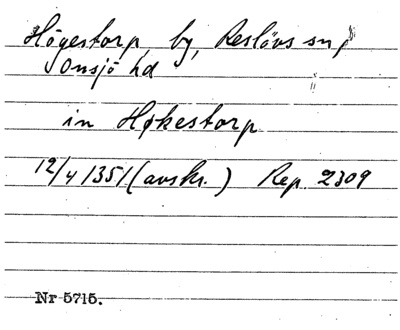 Högestorp, by, Reslövs sn,
Onsjö hd
in Høkestorp
12/4 1351 (avskr.) Rep 2309
Nr 5715.